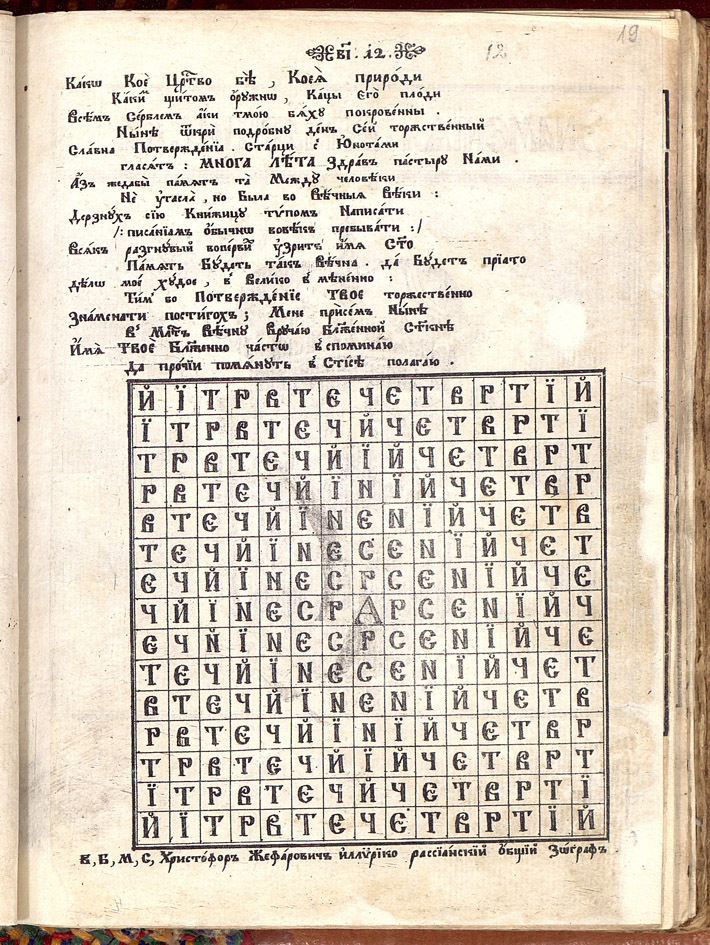 В҃І . 12 . 12 19
Какѡ Коѐ Црⷭ҇тво бѣ̀ , Коеѧ̀ приро́ди
Каки́й щи́томъ ѻ҆ру́жнѡ , Ка́цы Єгѡ̀ пло́ди
Всѣ́мъ Се́рблемъ а҆́ки тмо́ю бѧ́ху покрове́нны .
Ны́нѣ ѿкрѝ подро́бну де́нь Се́й торжⷭ҇твенный
Сла́вна Потвержде́нїа . Ста́рци с̾ Ю́нотами
глася́тъ : МНОГА ЛѢТА Здра́въ па́стыру На́ми .
А҆́зъ жеда́бы па́мѧть та̀ Ме́жду человѣ́ки
Не ᲂу҆га́сла , но Была̀ во Вѣ́чныѧ Вѣ́ки :
Дерзну́хъ сїю̀ Кни́жицу ту́помъ Написа́ти
/: писа́нїамъ ѻ҆бы́чнѡ вовѣ́къ пребыва́ти :/
Вся́къ разгну́вый вопе́рвый ᲂу҆́зритъ и҆́мѧ Сто̀
Па́мѧть Бу́детъ та́къ Вѣ́чна . да̀ Бу́детъ прїа́то
дѣ́лѡ моѐ худо́е , в̾ Вели́ко в̾ мѣне́нно :
Ти́м̾ бо Потвержде́нїе ТВОЕ торже́ственно
Зна́менати пости́гохъ ; Менѐ прїсе́мъ Ны́нѣ
В̾ Млⷭ҇ть Вѣ́чну Вруча́ю Бл҃же́нной Ст҃и́нѣ
И҆́мѧ ТВОЕ Бл҃же́нно ча́стѡ в̾спомина́ю
Да про́чїи помѧну́тъ в̾ Сти́сѣ полага́ю .
Й Ї Т Р В Т Є Ч Є Т В Р Т Ї Й
Ї Т Р В Т Є Ч Й Ч Є Т В Р Т Ї
Т Р В Т Є Ч Й Ї Й Ч Є Т В Р Т
Р В Т Є Ч Й Ї N Ї Й Ч Є Т В Р
В Т Є Ч Й Ї N Є N Ї Й Ч Є Т В
Т Є Ч Й Ї N Є С Є N Ї Й Ч Є Т
Є Ч Й Ї N Є С Р С Є N Ї Й Ч Є
Ч Й Ї N Є С Р А Р С Є N Ї Й Ч
Є Ч Й Ї N Є С Р С Є N Ї Й Ч Є
Т Є Ч Й Ї N Є С Є N Ї Й Ч Є Т
В Т Є Ч Й Ї N Є N Ї Й Ч Є Т В
Р В Т Є Ч Й Ї N Ї Й Ч Є Т В Р
Т Р В Т Є Ч Й Ї Й Ч Є Т В Р Т
Ї Т Р В Т Є Ч Й Ч Є Т В Р Т Ї
Й Ї Т Р В Т Є Ч Є Т В Р Т Ї Й
В , Б , М , С , Христо́форъ Жефа́ровичъ и҆ллѷрїко рассїа́нскїй ѻ҆́бщїй Зѡ́графъ .